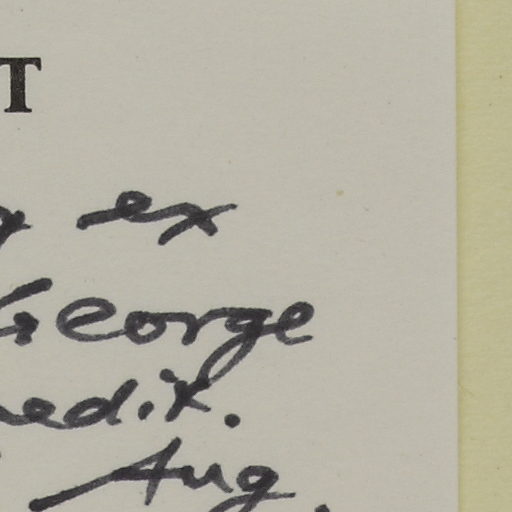 T
ex
George
edit.
Aug